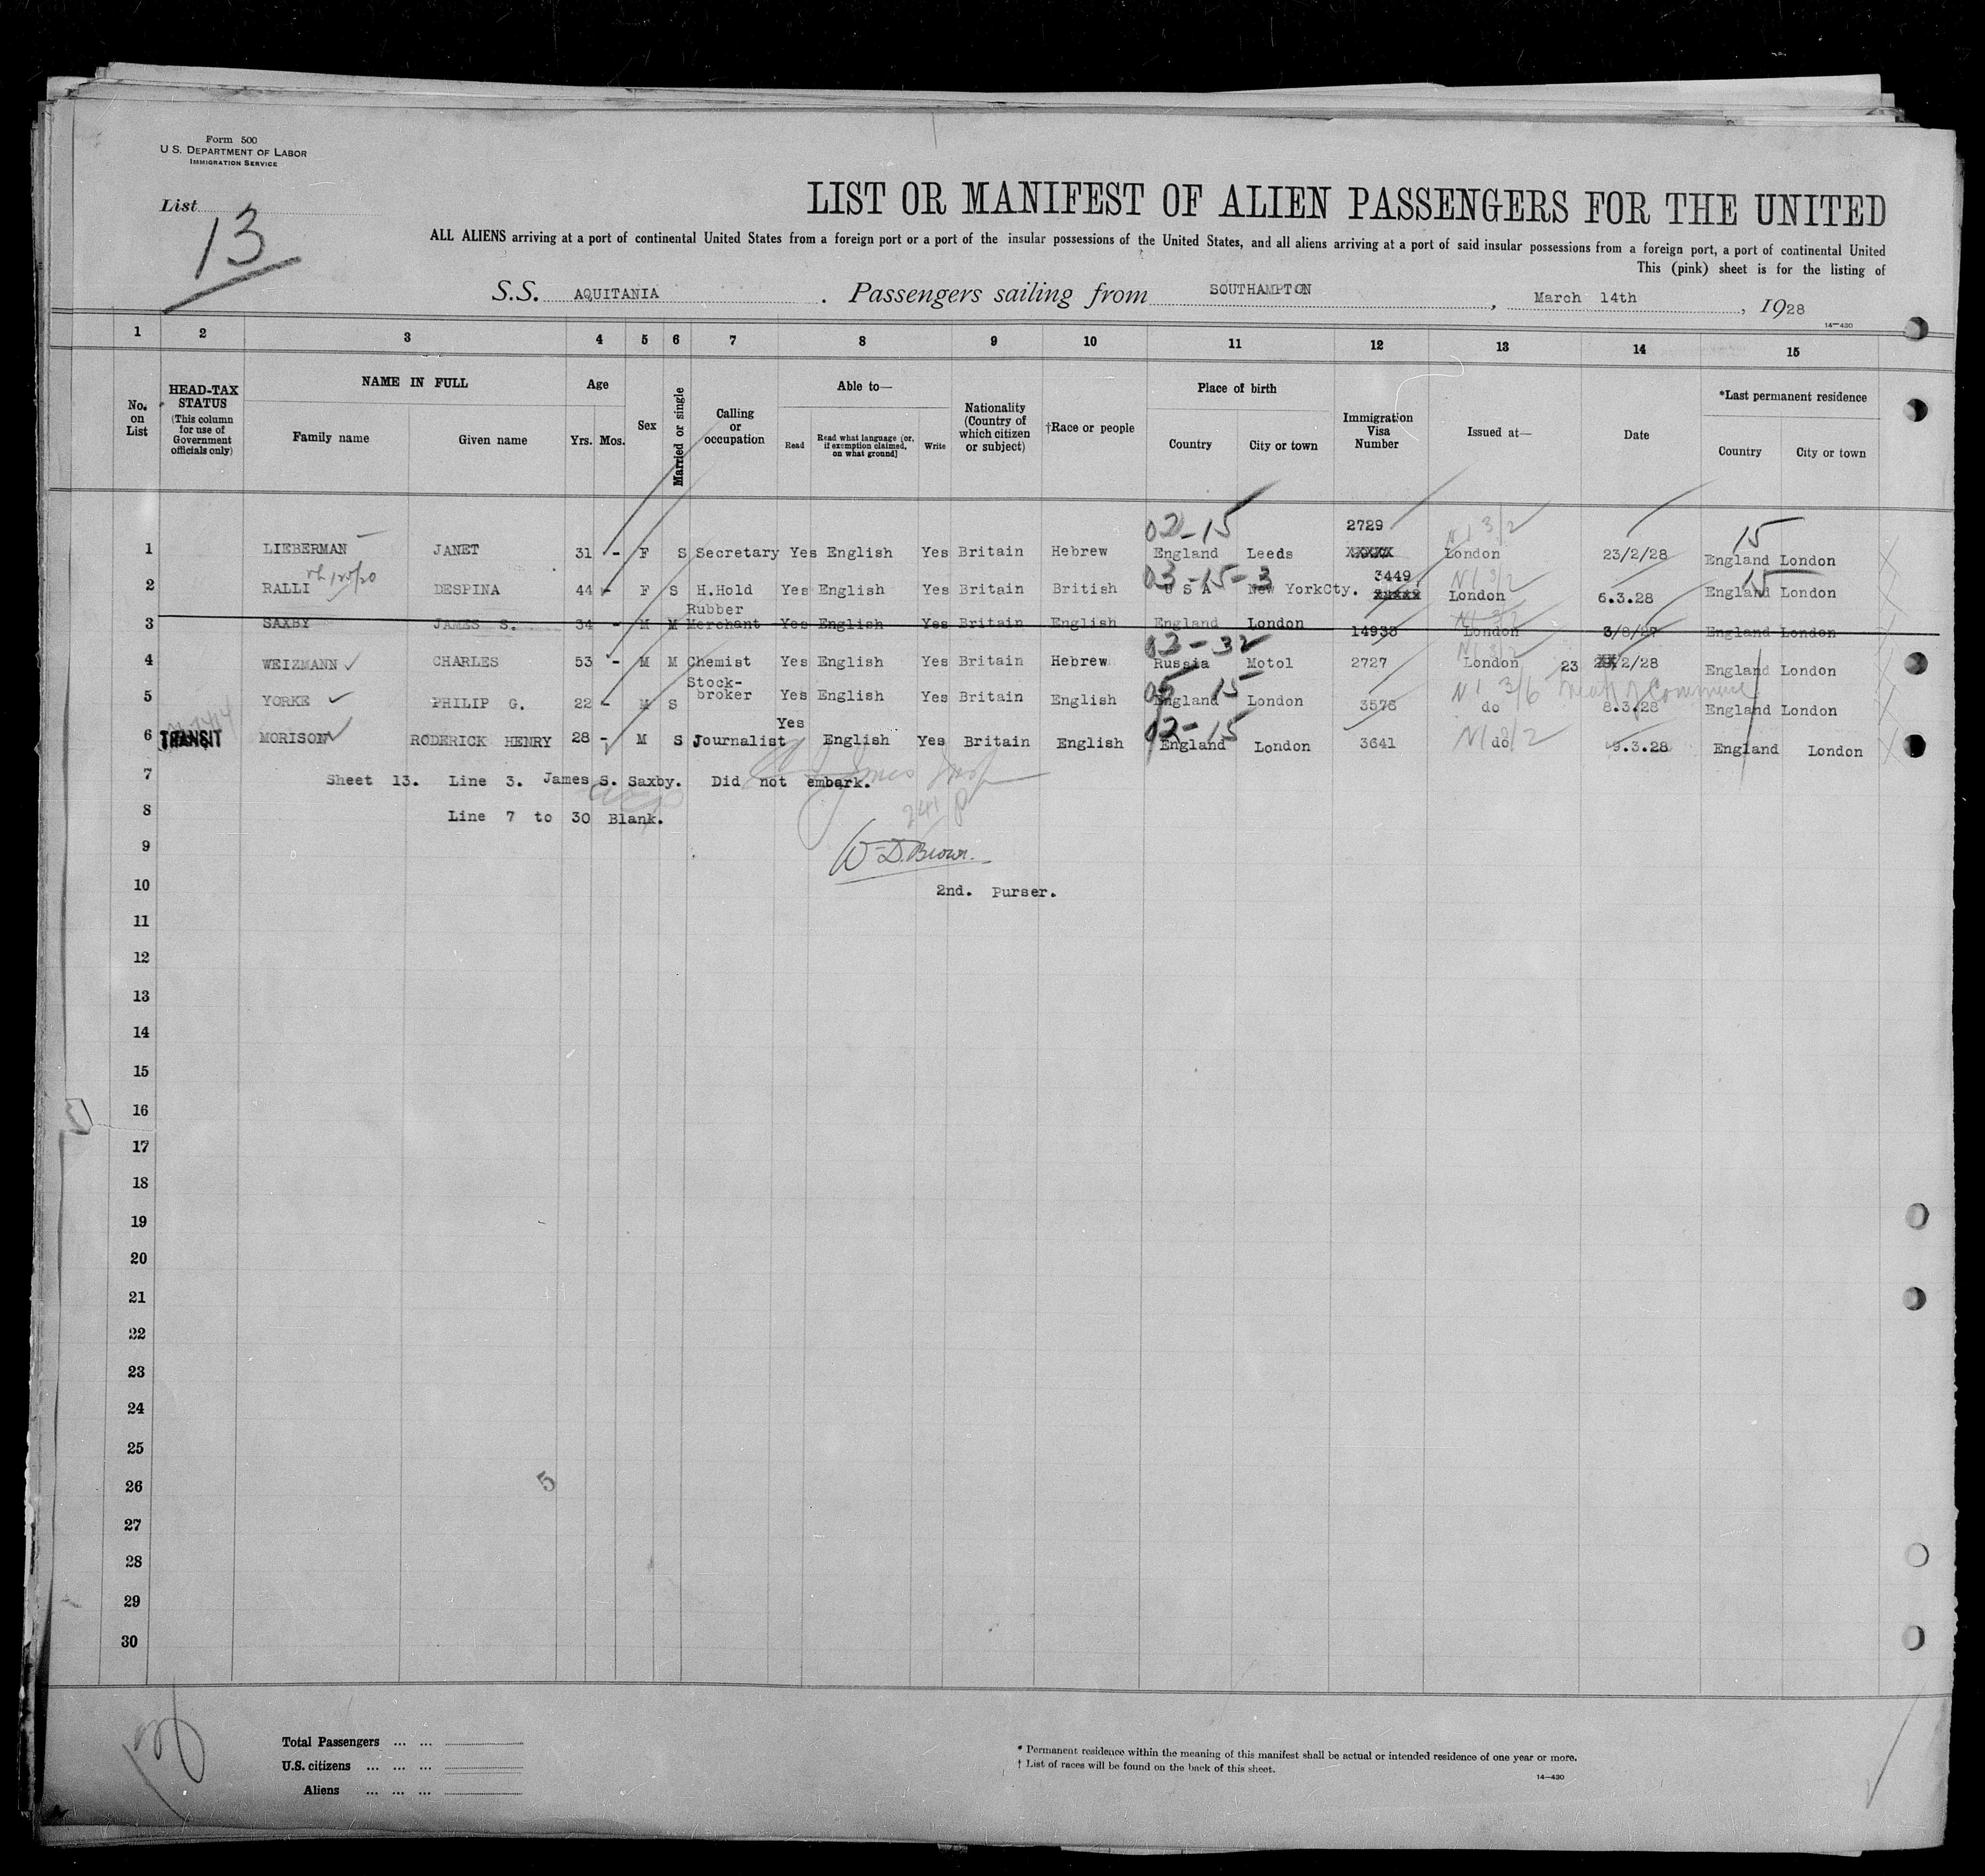 Form 500
U.S. DEPARTMENT OF LABOR
IMMIGRATION SERVICE
List 13
LIST OR MANIFEST OF ALIEN PASSENGERS FOR THE UNITED
ALL ALIENS arriving at a port of continental United States from a foreign port or a port of the insular possessions of the United States, and all aliens arriving at a port of said insular possessions from a foreign port, a port of continental United
This (pink) sheet is for the listing of
S.S. AQUITANIA . Passengers sailing from SOUTHAMPTON , March 14th , 1928
14—430
1 2 3 4 5 6 7 8 9 10 11 12 13 14 15
No. on List
HEAD-TAX STATUS (This column for use of Government officials only)
NAME IN FULL
Family name Given name
Age
Yrs. Mos.
Sex
Married or single
Calling or occupation
Able to—
Read Read what language [or, if exemption claimed, on what ground] Write
Nationality (Country of which citizen or subject)
†Race or people
Place of birth
Country City or town
Immigration Visa Number
Issued at—
Date
*Last permanent residence
Country City or town
02-15 2729 N I 3/2 15
1 LIEBERMAN JANET 31 - F S Secretary Yes English Yes Britain Hebrew England Leeds XXXXX London 23/2/28 England London
03-15-3 3449 N I 3/2 15
2 RALLI DESPINA 44 - F S H.Hold Yes English Yes Britain British U S A New YorkCty. London 6.3.28 England London
Rubber N I 3/2
3 SAXBY JAMES S. 34 - M M Merchant Yes English Yes Britain English England London 14938 London 3/8/27 England London
02-32 N I 3/2
4 WEIZMANN CHARLES 53 - M M Chemist Yes English Yes Britain Hebrew Russia Motol 2727 London 23 /2/28 England London
Stock- 05 15 N I 3/6 of Commerce
5 YORKE PHILIP G. 22 - M S broker Yes English Yes Britain English England London 3578 do 8.3.28 England London
Yes 02-15 N I 3/2
6 TRANSIT MORISON RODERICK HENRY 28 - M S Journalist English Yes Britain English England London 3641 do 9.3.28 England London
7 Sheet 13. Line 3. James S. Saxby. Did not embark.
8 Line 7 to 30 Blank.
241 P
9 W D. Brown.
10 2nd. Purser.
11
12
13
14
15
16
17
18
19
20
21
22
23
24
25
26 5
27
28
29
30
Total Passengers ... ...
U.S. citizens ... ... ...
Aliens ... ... ...
* Permanent residence within the meaning of this manifest shall be actual or intended residence of one year or more.
† List of races will be found on the back of this sheet.
14—430